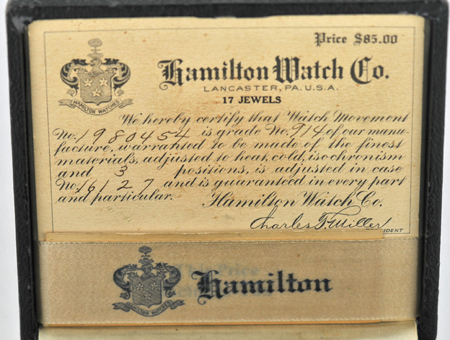 Price $85.00
HAMILTON WATCHES
Hamilton Watch Co.
LANCASTER, PA. U.S.A.
17 JEWELS
We hereby certify that Watch Movement
No. 1980454 is grade No. 914 of our manu-
facture, warranted to be made of the finest
materials, adjusted to heat, cold, isochronism
and 3 positions, is adjusted in case
No. 6127 and is guaranteed in every part
and particular. Hamilton Watch Co.
Charles F. Miller
IDENT
Hamilton